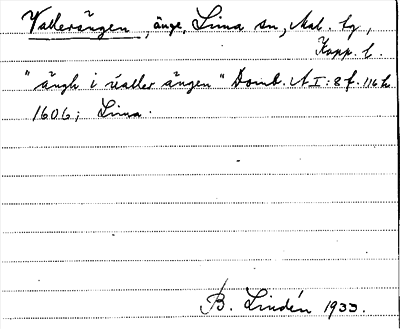 Vallerängen, änge, Lima sn, Mal. tg.,
Kopp. l.
"ängh i ualler ängen" Domb. A I:8 f. 116 h
1606; Lima.
B. Lindén 1933.